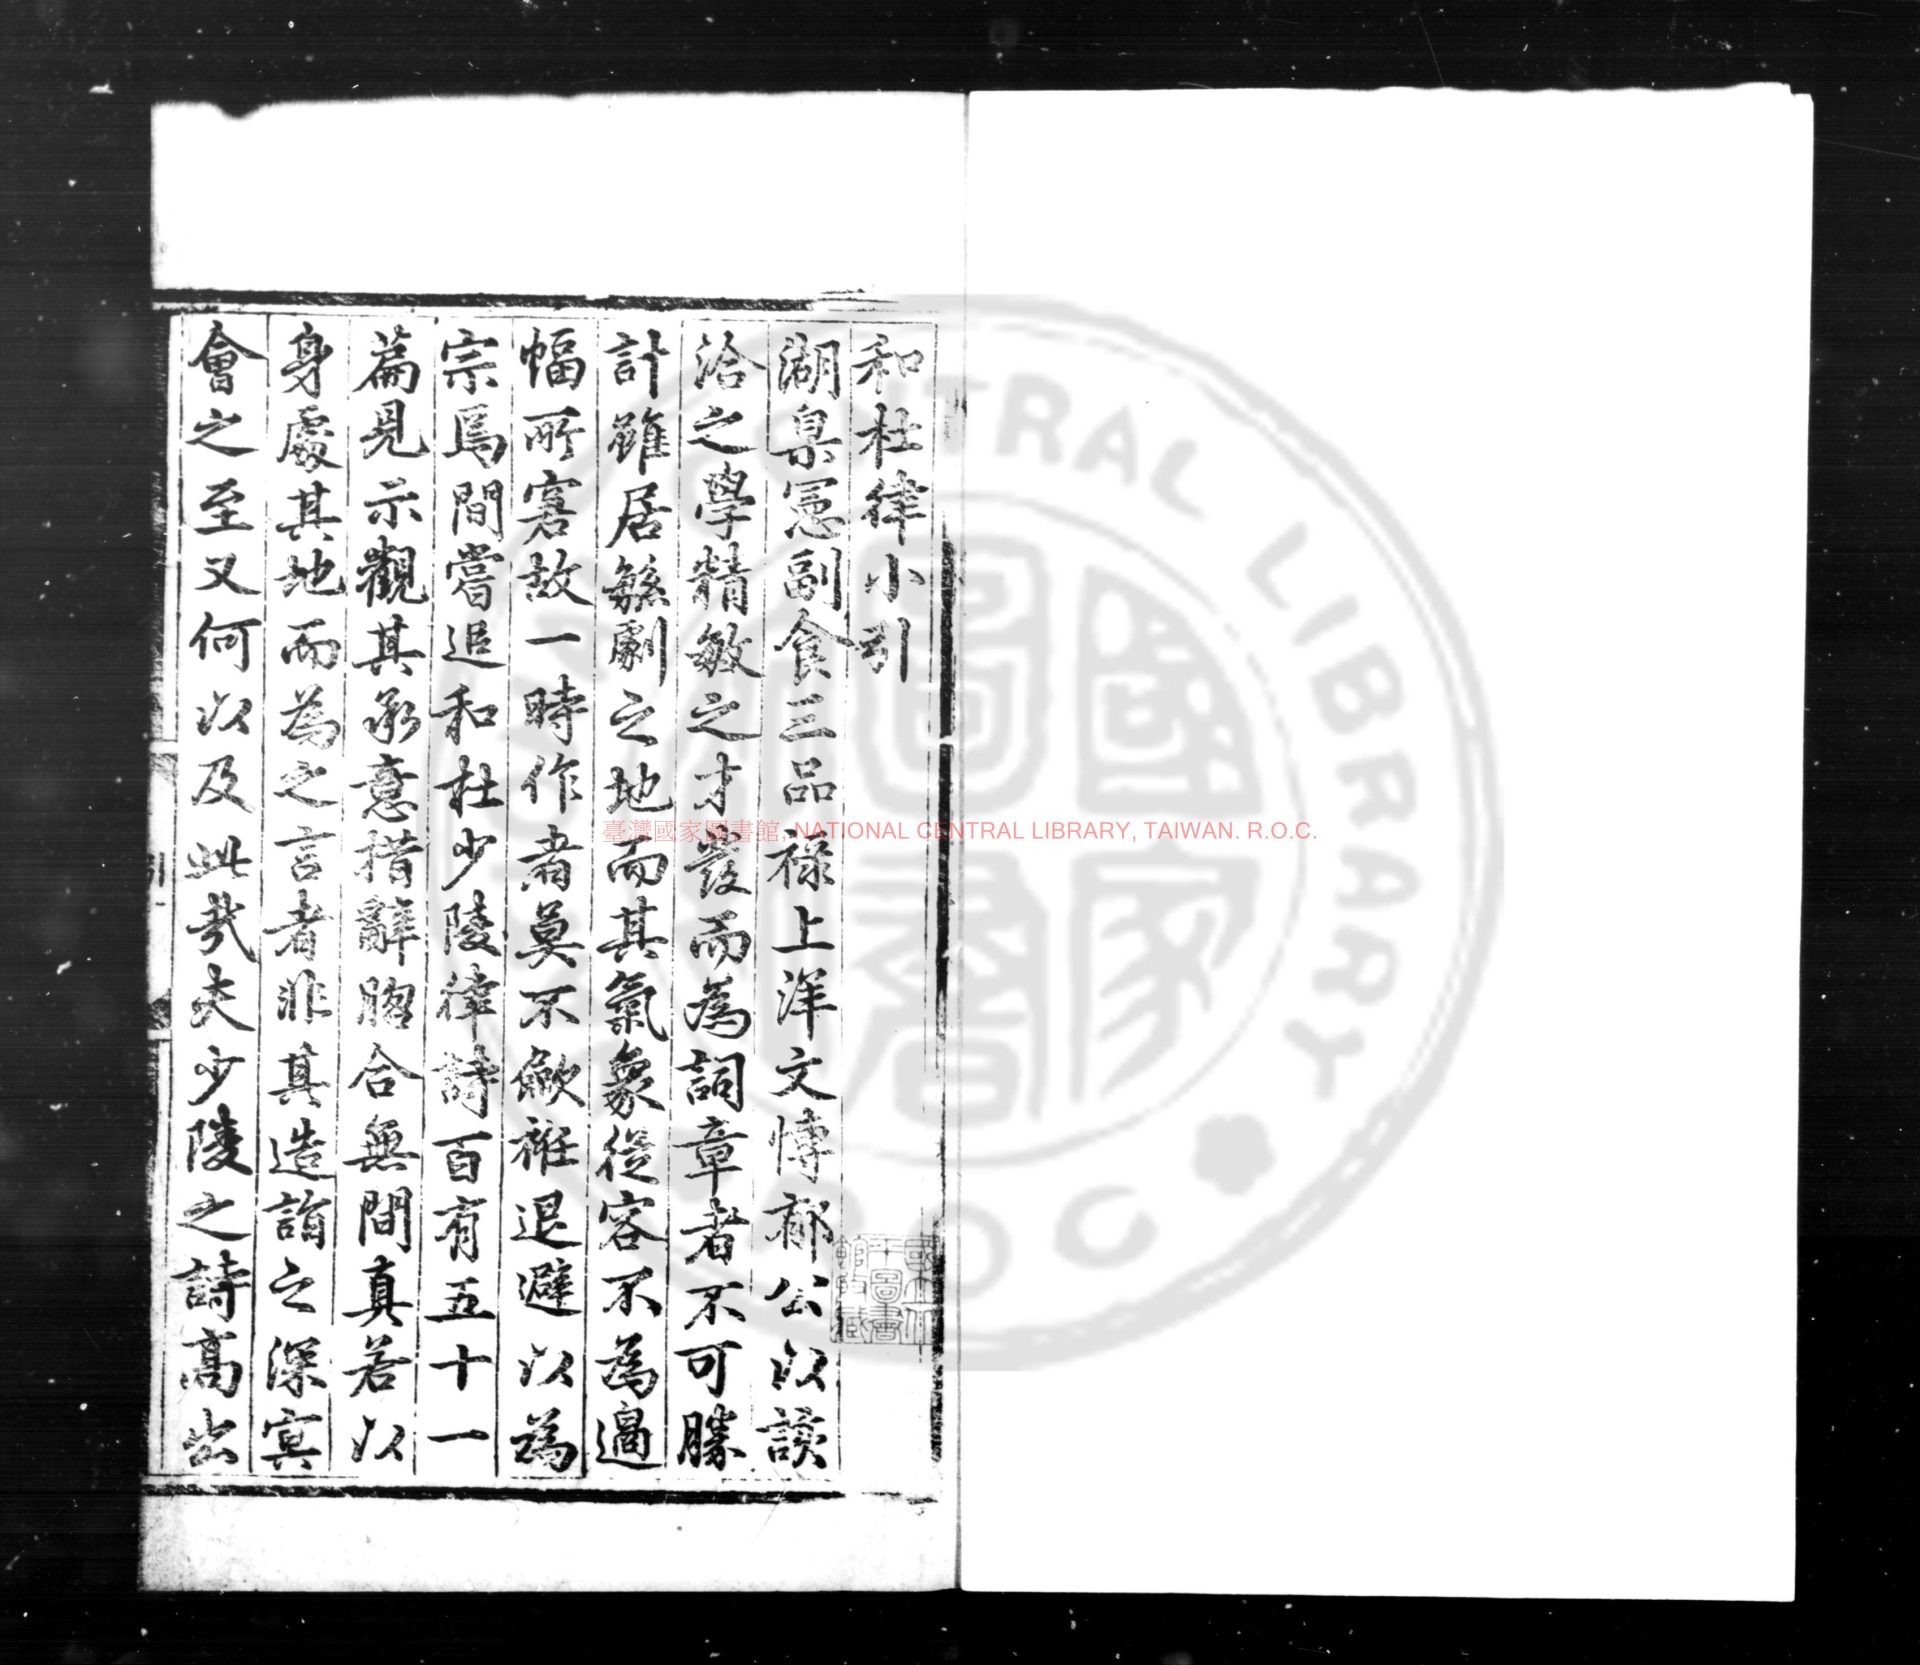 和杜律小引
湖臬憲副食三品祿上洋文博郁公以該
洽之學精敏之才發而為詞章者不可勝
計雖居繇劇之地而其氣象從容不為邊
幅所窘故一時作者莫不歛袵退避以為
宗焉間嘗追和杜少陵律詩百有五十一
篇見示觀其承意措辭脗合無間真若以
身處其地而為之言者非其造詣之深冥
會之至又何以及此哉夫少陵之詩髙出
臺灣國家圖書館, NATIONAL CENTRAL LIBRARY, TAIWAN. R.O.C.